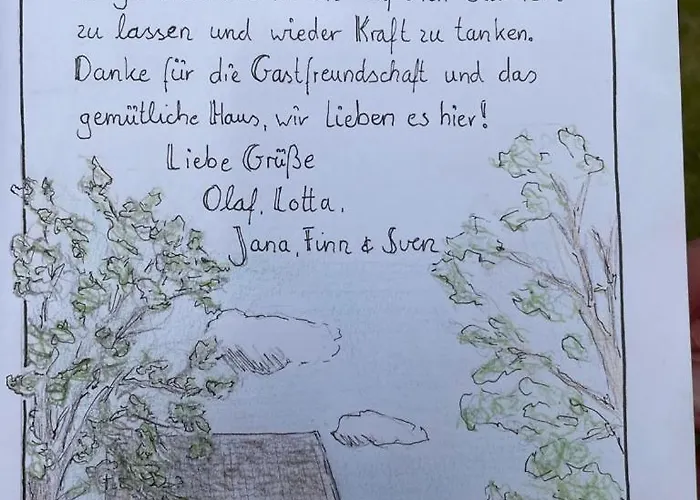 zu lassen und wieder Kraft zu tanken.
Danke für die Gastfreundschaft und das
gemütliche Haus, wir lieben es hier!
Liebe Grüße
Olaf, Lotta,
Jana, Finn & Sven